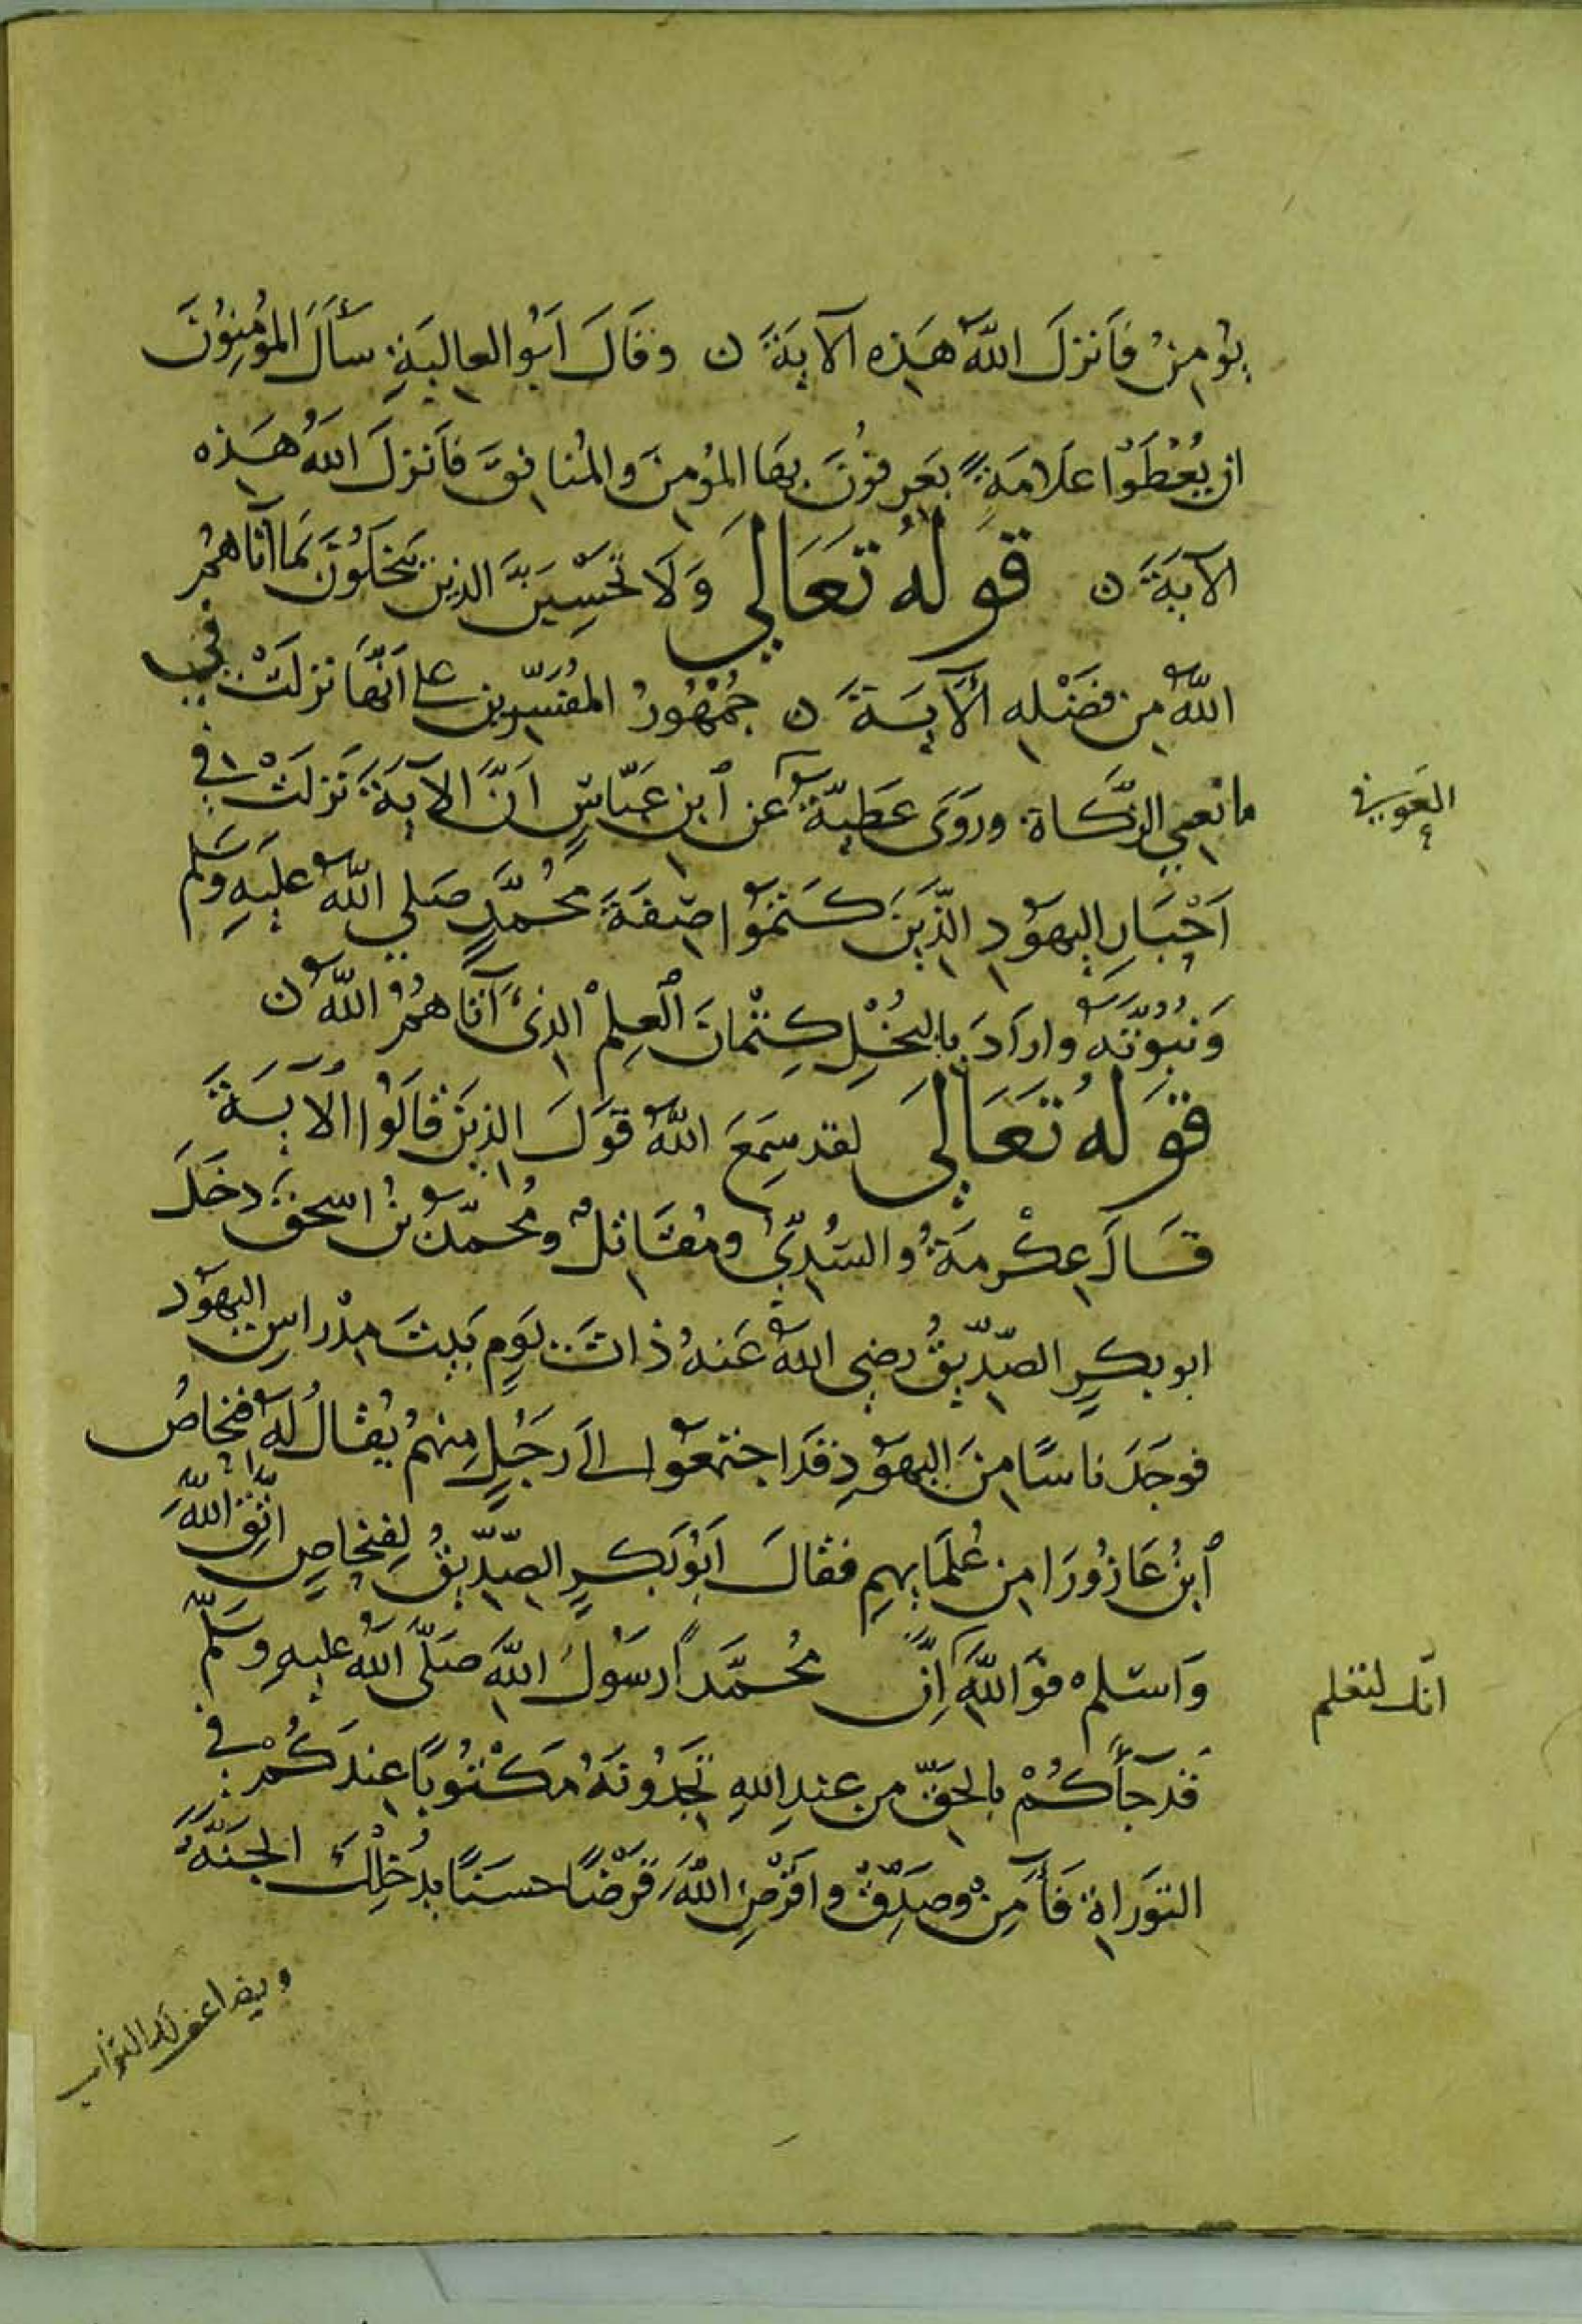 يُومِنُ فَأنزلَ اللّهُ هَذِهِ الآيَةَ ن وقَالَ أبُو العالِيَةِ سأَلَ المُؤمِنُونَ
ان يُعْطَوْا عَلَامَةً يَعرِفُونَ بِهَا المُؤمِنَ والمُنافِقَ فأنزلَ اللهُ هَذِه
الآيَةَ ن قَولُهُ تَعَالِي وَلَا تَحْسِبَنَّ الذِين يَبخَلُونَ بمَا آتاهمُ
اللّهُ مِن فَضْلِهِ الآيَةَ ن جُمْهُورُ المفَسِّرِين على أنّهَا نزلَتْ في
مانِعِي الزَّكاة وروَى عَطِيّةُ عن ٱبنِ عَبّاسٍ انَّ الآيَةَ نَزلَتْ في
العوفي
أحْبَارِ اليهُودِ الذِّينَ كتَمُوا صِفَةَ محُمَّدٍ صَلى اللّهُ عليهِ وسَلم
وَنُبُوّتَهُ وارَادَ بِالبُخْلِ كِتْمانَ ٱلعِلْمِ الذِى آتاهُمُ اللّهُ ن
قَولُهُ تَعَالَي لقد سَمِعَ اللّهُ قَولَ الذِينَ قَالُوا الآيَةَ
قَالَ عِكْرِمَةُ والسُّدِّيُّ ومُقَاتِلٌ ومُحمّدُ بنُ اسحقَ دخَلَ
ابو بكرٍ الصِّدّيقُ رضِي اللّهُ عَنهُ ذاتَ يَومٍ بَيتَ مِدْرَاسِ اليهُود
فوجَدَ ناسًا مِنَ اليهُودِ قَدَ اجتمعُوا الَى رَجُلٍ مِنهُم يُقالُ لهُ فنحاصُ
ٱبنُ عَازُورَا مِن عُلَمَايهِم فقالَ أبُو بَكرٍ الصِّدّيقُ لِفِنحَاصٍ اتّقِ اللّهَ
وَاسْلم فوَاللّهِ اِنَّ محُمَّداً رسُولُ اللّهِ صَلَّى اللهُ عليهِ وسَلّم
انّك لتعلم
قَد جآكُمْ بالحَقّ مِن عِندِ اللهِ تَجِدُونَهُ مَكْتُوبًا عِندَكُمْ في
التورَاةِ فَآمِنْ وصَدِّقْ واقْرِضِ اللّهَ قَرْضًا حسَنًا يدْخِلْكَ الجنّةَ
ويضاعف لك الثواب